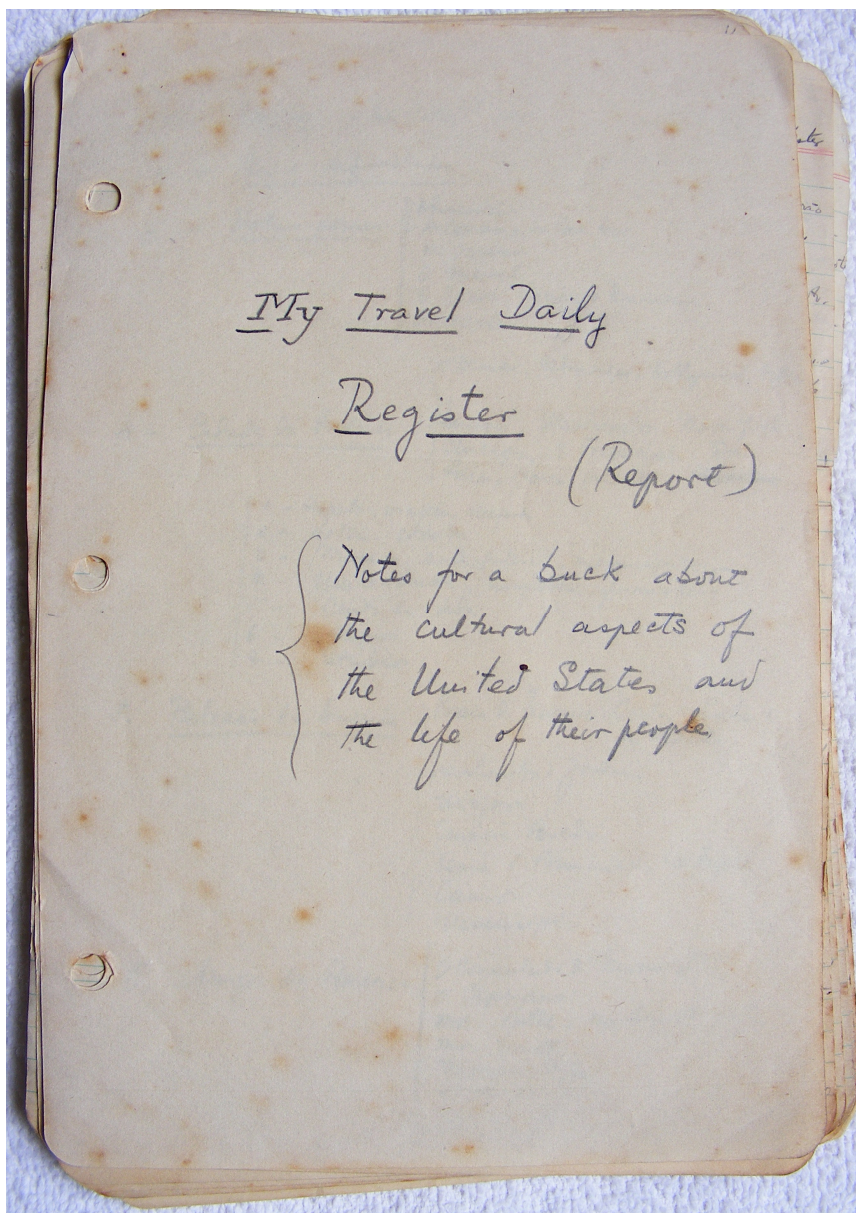 My Travel Daily
Register
(Report)
Notes for a buck about
the cultural aspects of
the United States and
the life of their people